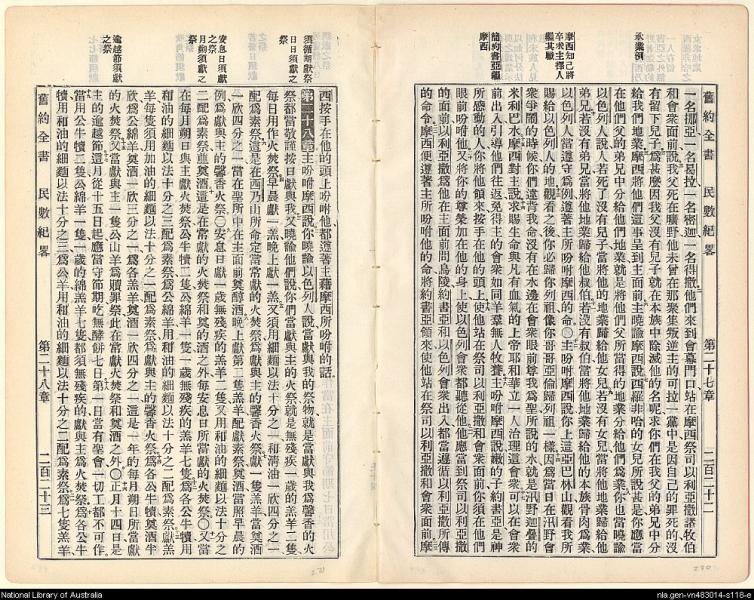 承業例
摩西知己將
卒求主擇人
繼其職
簡約書亞繼
摩西
舊約全書 民數紀畧 第二十七章 二百二十二
一名挪亞一名曷拉一名密迦一名得撒他們來到會幕門口站在摩西祭司以利亞撒諸牧伯
和會衆面前說我父死在曠野他未曾在那聚集叛逆主的可拉一黨中是因自己的罪死的沒
有留下兒子爲甚麽因我父沒有兒子就在本族中除滅他的名呢求你們在我父的弟兄中分
給我們地業摩西將他們這事呈到主面前主曉諭摩西說西羅非哈的女兒所說甚是你應當
在他們父的弟兄中分給他們地業就是將他們父所當得的地業分給他們爲業你也當曉諭
以色列人說人若死了沒有兒子當將他的地業歸給他女兒若沒有女兒當將他地業歸給他
弟兄若沒有弟兄當將他地業歸給他叔伯若沒有叔伯當將他地業歸給他的本族骨肉爲業
以色列人當遵守爲例遵著主所吩咐摩西的命〇主吩咐摩西說你上這亞巴林山觀看我所
賜給以色列人的地觀看之後你必歸你列祖像你哥哥亞倫歸列祖一樣因爲當日在汛野會
衆爭鬧的時候你們違背我命沒有在水邊在會衆眼前尊我爲聖所說的水就是汛野迦疊的
米利巴水摩西對主說求賜生命與凡有血氣的上帝耶和華立一人治理這會衆可以在會衆
前出入引導他們往返免得主的會衆如同羊羣無人牧養主吩咐摩西說嫩的子約書亞是神
所感動的人你將他領來按手在他的頭上使他站在祭司以利亞撒和會衆面前你須在他們
眼前吩咐他又將你的尊榮加在他的身上使以色列會衆都聽從他他應當到祭司以利亞撒
的面前以利亞撒爲他在主面前問烏陵約書亞和以色列會衆出入都當遵循以利亞撒所傳
的命令摩西便遵著主所吩咐他的命將約書亞領來使他站在祭司以利亞撒和會衆面前摩
須循期獻祭
日日須獻之
祭
安息日須獻
之祭
月朔須獻之
祭
逾越節須獻
之祭
西按手在他的頭上吩咐他都遵著主藉摩西所吩咐的話
第二十八章主吩咐摩西說你曉諭以色列人說當獻與我的祭物就是當獻與我爲馨香的火
祭都當敬謹按日獻與我又曉諭他們說你們當獻與主的火祭就是無殘疾一歲的羔羊二隻
每日用作火焚祭早晨獻一羔晚上獻一羔又須用細麵伊法十分之一和淸油一欣四分之一
配爲素祭這是在西乃山所命定當常獻的火焚祭爲獻與主的馨香火祭獻一隻羔羊當奠酒
一欣四分之一當在聖所中在主面前奠醇酒晚上獻第二隻羔羊配獻素祭奠酒當照早晨的
例爲獻與主的馨香火祭〇安息日獻一歲無殘疾的羔羊二隻又用和油的細麵伊法十分之
二配爲素祭並奠酒這是在常獻的火焚祭和奠的酒之外每安息日所當獻的火焚祭〇又當
在每月朔日與主獻火焚祭公牛犢二隻公綿羊一隻一歲無殘疾的羔羊七隻爲各公牛犢用
和油的細麵以法十分之三配爲素祭爲公綿羊用和油的細麵以法十分之二配爲素祭爲各羔
羊每隻須用加油的細麵以法十分之一配爲素祭爲獻與主的馨香火祭爲各公牛奠酒半
欣爲公綿羊奠酒一欣三分之一爲各羔羊奠酒一欣四分之一這是一年的每月朔日所當獻
的火焚祭又當獻與主一隻公山羊爲贖罪祭此在常獻火焚祭和奠酒之外〇正月十四日是
主的逾越節這月從十五日起應當守節期吃無酵餅七日第一日當有聖會一切工都不可作
當用公牛犢二隻公綿羊一隻一歲的綿羔羊七隻都須無殘疾的獻與主爲火焚祭爲各公牛
犢用和油的細麵以法十分之三爲公綿羊用和油的細麵以法十分之二配爲素祭爲七隻羔羊
舊約全書 民數紀畧 第二十八章 二百二十三
National Library of Australia
nla.gen-vn483014-s118-e